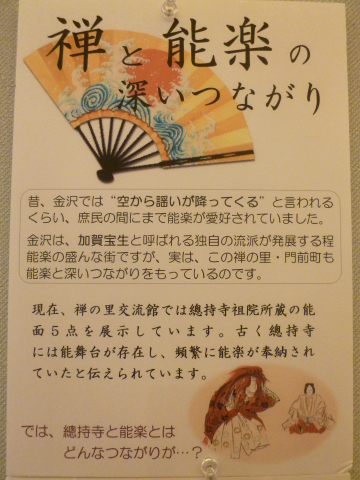 禅と能楽の
深いつながり
昔、金沢では“空から謡いが降ってくる”と言われる
くらい、庶民の間にまで能楽が愛好されていました。
金沢は、加賀宝生と呼ばれる独自の流派が発展する程
能楽の盛んな街ですが、実は、この禅の里・門前町も
能楽と深いつながりをもっているのです。
現在、禅の里交流館では總持寺祖院所蔵の能
面５点を展示しています。古く總持寺
には能舞台が存在し、頻繁に能楽が奉納され
ていたと伝えられています。
では、總持寺と能楽とは
どんなつながりが…？